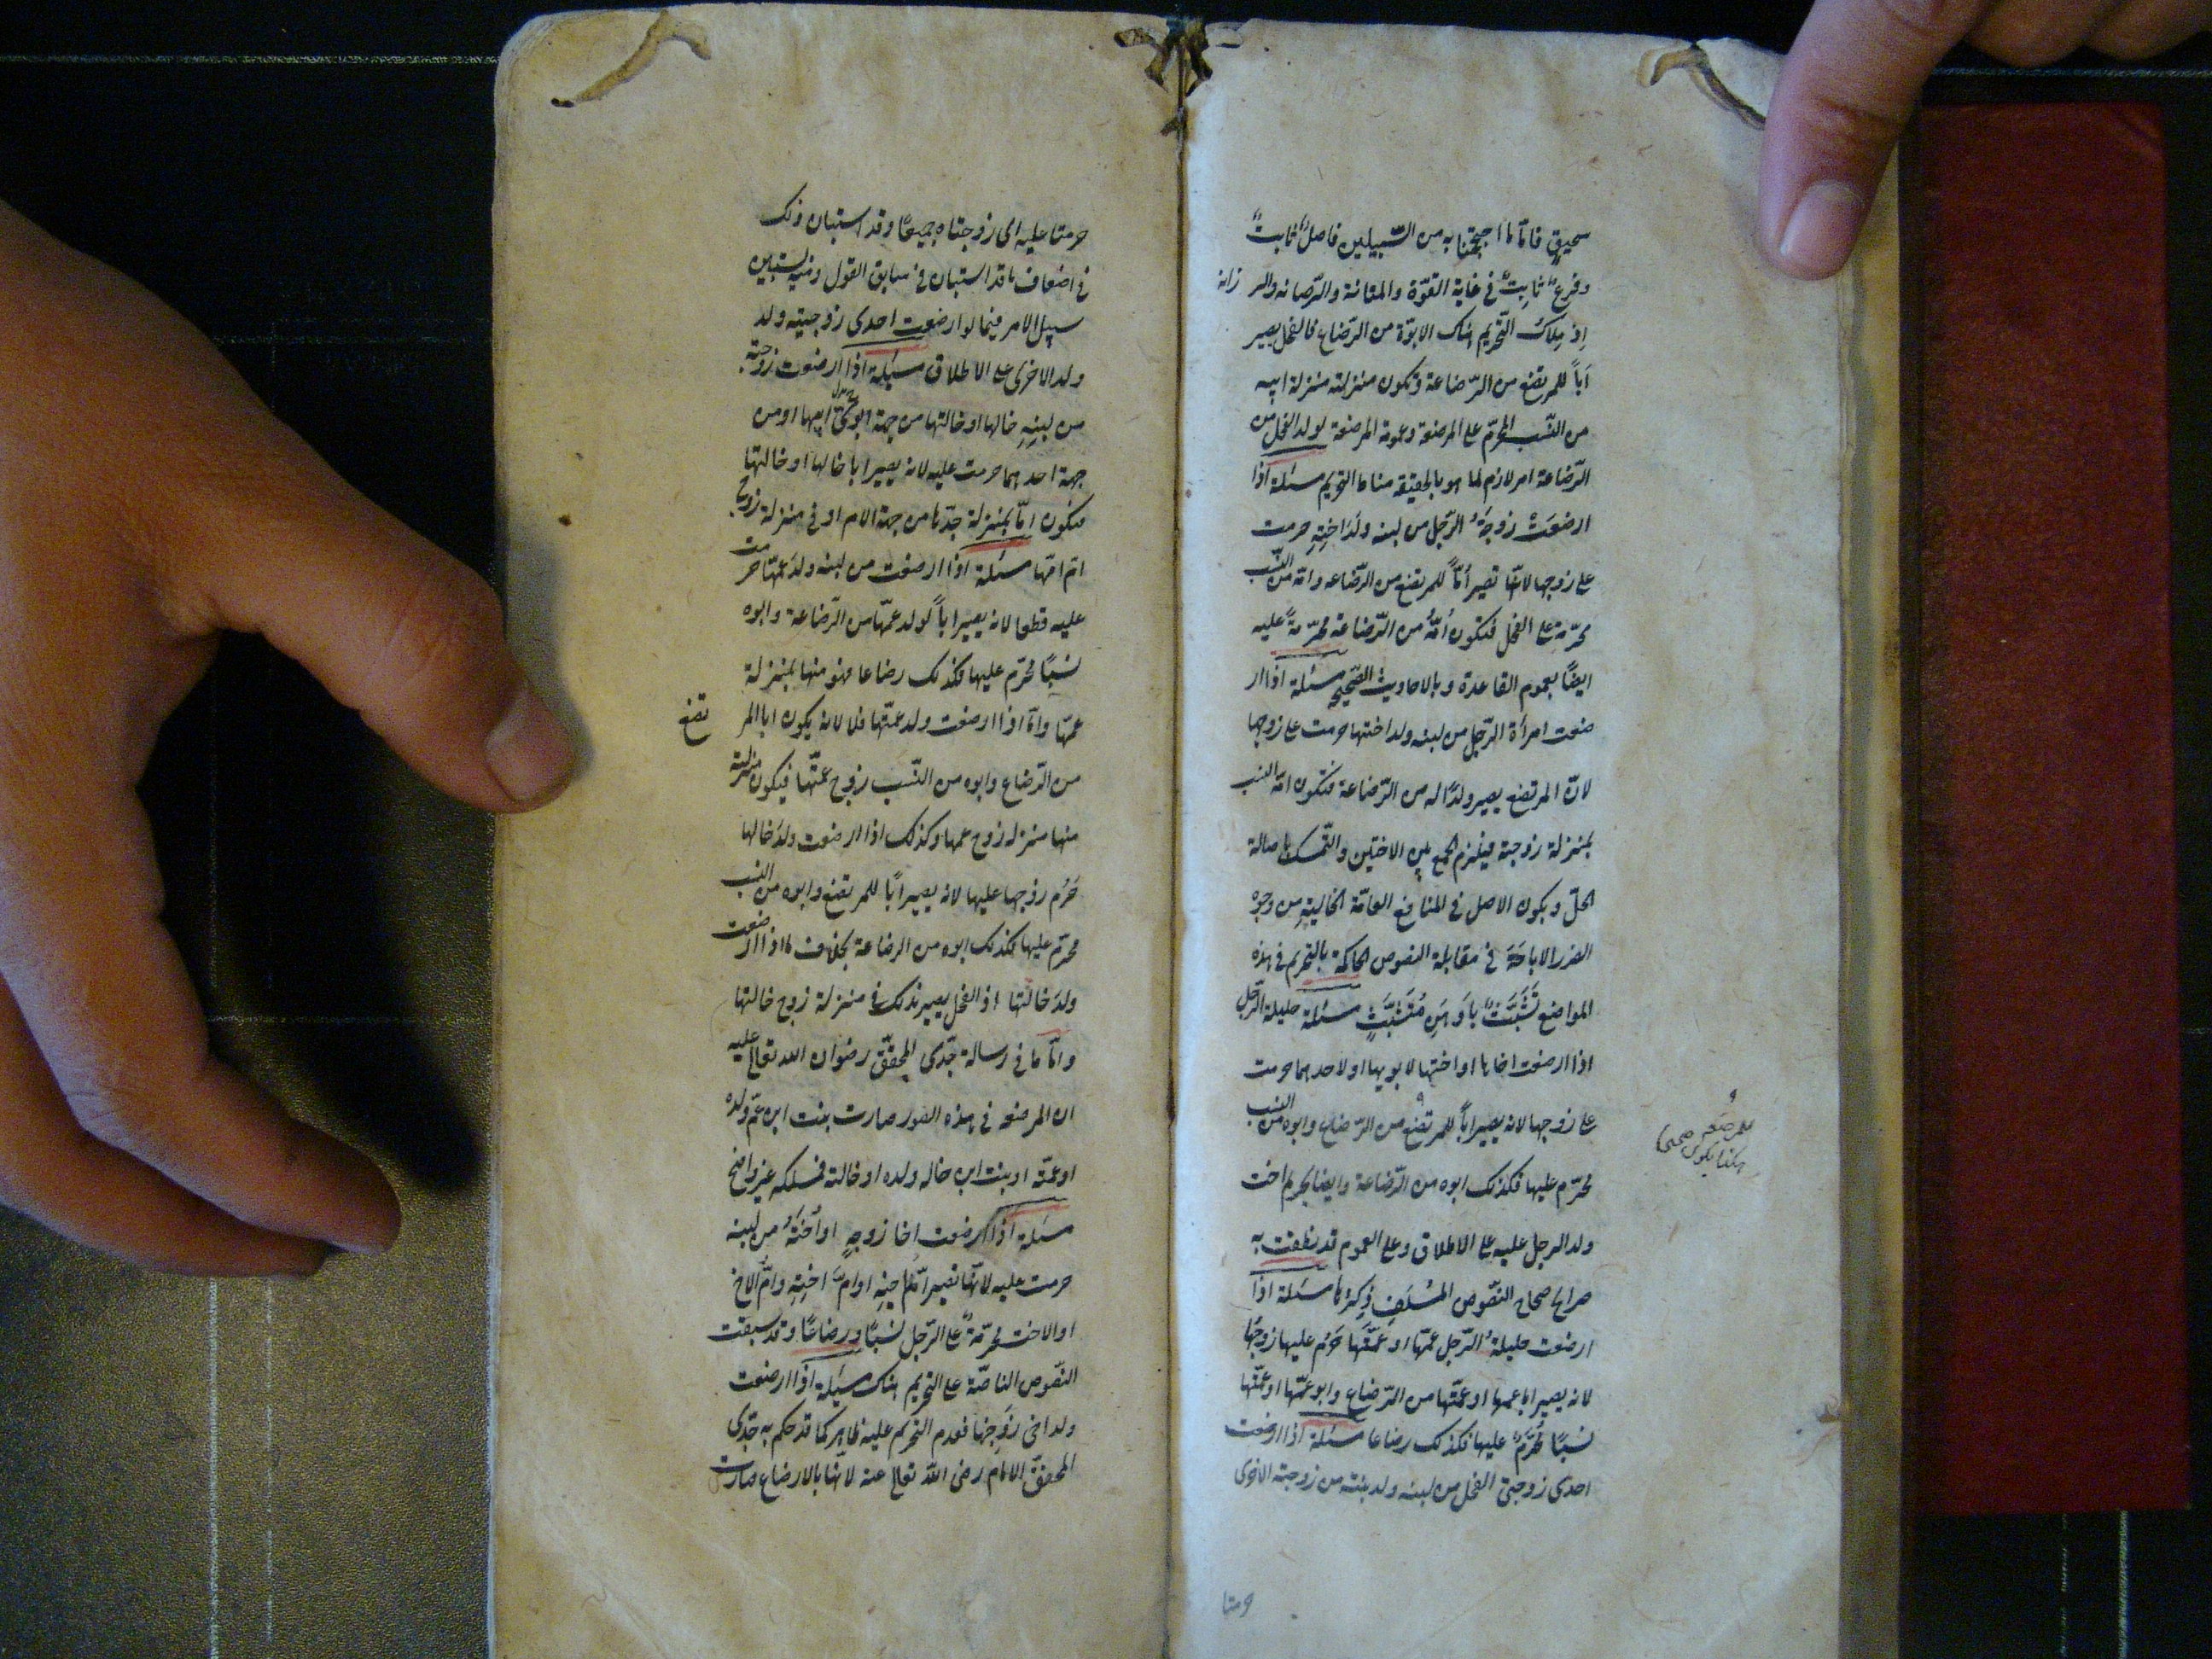 سحيق فاما ما احتججنا به من السبيلين فاصلٌ ثابتٌ
وفرعٌ ثابتٌ في غاية القوّة والمتانة والرّصانة والرزانه
اِذ مِلاك التّحريم هناك الابوّة من الرّضاع فالفحل يصير
اَباً للمرتضع من الرّضاعة وتكون منزلته منزلة ابيه
من النّسب المحرّم على المرضعة وعمومة المرضعة لولد الفحل من
الرّضاعة امر لازم لما هو بالحقيقة مناط التحريم مسئلة اذا
ارضعَتْ زوجَةُ الرّجل من لبنه ولَدَ اختِهِ حرمت
على زوجها لانّها تصير اُمّاً للمرتضع من الرّضاعه وامّه من النّسب
محرّمة على الفحل فتكون اُمّهُ من الرّضاعة محرّمةً عليه
ايضًا بعموم القاعدة وبالاحاديث الصّحيحه مسئلة اذا ار
ضعت امرأة الرّجل من لبنه ولد اختها حرمت على زوجها
لانّ المرتضع يصير ولدًا له من الرّضاعة فتكون امّه النسب
بمنزلة زوجته فيلزم الجمع بين الاختين والتّمسك باصالة
الحلّ وبكون الاصل في المنافع العامّة الخالية من وجوه
الضرر الاباحَةَ في مقابلة النصوص الحاكمة بالتحريم في هذه
المواضع تَشَبُّثٌ باَوهَنِ مُتَشَبَّثٍ مسئلة حليلة الرّجل
اذا ارضعت اخاها او اختها لابويها او لاحدهما حرمت
على زوجها لانه يصير اباً للمرتضع من الرّضاع وابوه من النسب
محرّم عليها فكذلك ابوه من الرّضاعة وايضا تحريم اخت
ولد الرجل عليه على الاطلاق وعلى العموم قد نطقت به
صراح صحاح النّصوص المُسْلَفِ ذِكرُها مسئلة اذا
ارضعت حليلةُ الرّجل عمّها او عمّتَها حَرُم عليها زوجُها
لانه يصير ابا عمها او عمّتها من الرّضاع وابو عمّها او عمّتها
نَسَبًا مُحَرَّمٌ عليها فكذلك رضاعا مسئلة اذا ارضعت
احدى زوجتي الفحل من لبنه ولد بنته من زوجته الاخرى
حرمتا
للمرضَعِ
هكذا يكون صحيحا
حرمتا عليه اي زوجتاه جميعًا وقد استبان ذلك
في اضعاف ما قد استبان في سابق القول ومنه يستبين
سبيل الامر فيما لو ارضعت احدى زوجتيه ولد
ولد الاخرى على الاطلاق مسئلة اذا ارضعت زوجته
من لبنِهِ خالها او خالتها من جهة ابوي امها او من
جهة احدهما حرمت عليه لانه يصير ابا خالها او خالتها
فيكون امّا بمنزلة جدّها من جهة الام او في منزلة زوج
امّ امّها مسئلة اذا ارضعت من لبنه ولدَ عمّها حرمت
عليه قطعا لانه يصير اباً لولد عمّها من الرّضاعة وابوه
نسَبًا محرّم عليها فكذلك رضاعا فهو منها بمنزلة
عمّها وامّا اذا ارضعت ولد عمّتها فلا لانه يكون ابا المرتضع
من الرّضاع وابوه من النّسب زوج عمّتها فيكون منزلته
منها منزلة زوج عمها وكذلك اذا ارضعت ولدَ خالها
حَرُم زوجها عليها لانه يصير ابًا للمرتضع وابوه من النسب
محرّم عليها فكذلك ابوه من الرضاعة بخلاف ما اذا ارضعت
ولدَ خالتها اِذ الفحل يصير بذلك في منزلة زوج خالتها
وامّا ما في رسالة جدّي المحقّق رضوان الله تعالى عليه
ان المرضعه في هذه الصور صارت بنت ابن عمّ ولده
او عمّته او بنت ابن خاله ولده او خالته فمسلكه غير واضح
مسئلة اذا ارضعت اخا زوجِهِ او اُختَهُ من لبنه
حرمت عليه لانّها تصير امّ اخيهِ او امّ اختِهِ وامّ الاخ
او الاخت محرّمةٌ على الرّجل نَسَبًا ورضاعًا وقد سبقت
النّصوص الناصّة على التحريم هناك مسئلة اذا ارضعت
ولد اخي زوجها فعدم التحريم عليه ظاهر كما قد حكم به جدّي
المحقق الامام رضى اللّه تعالى عنه لانها بالارضاع صارت